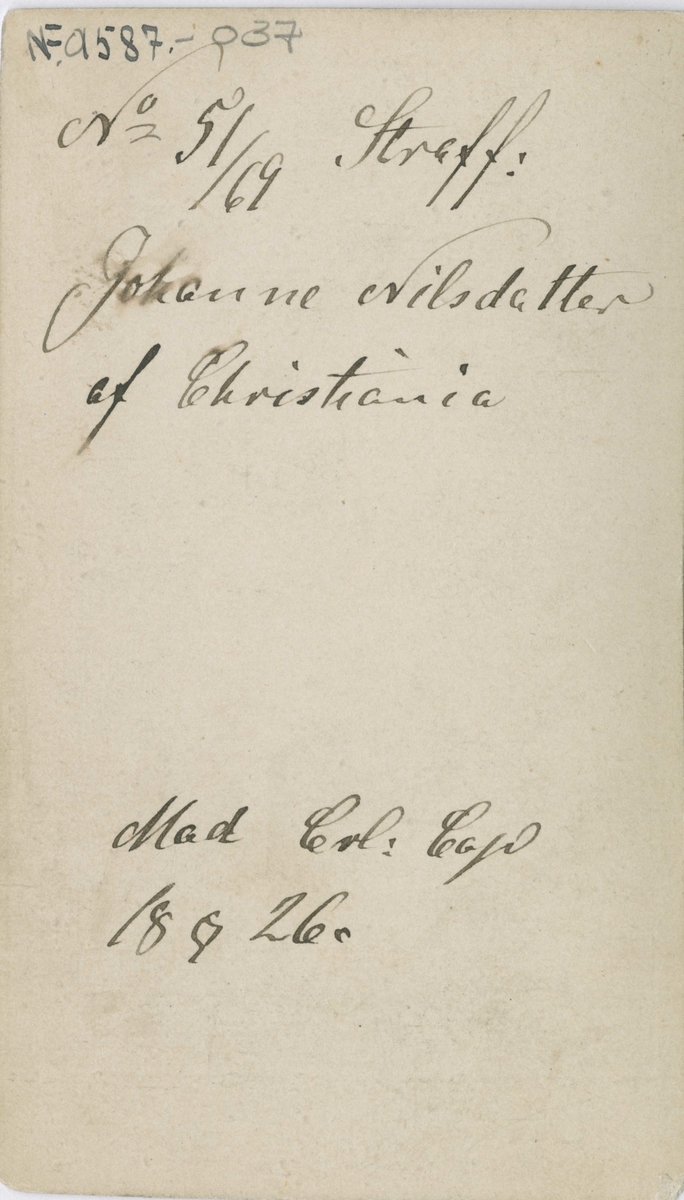 NF. a587.- 037
No 51/69 Straff:
Johanne Nilsdatter
af Christiania
Mad Crl: Cap
18 § 26.